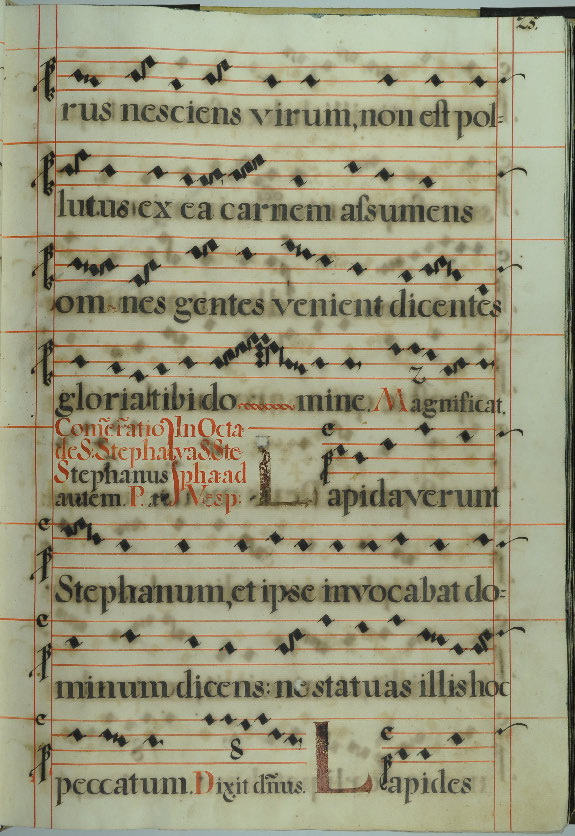 25.
rus nesciens virum, non est pol=
lutus ex ea carnem assumens
om nes gentes venient dicentes
gloria tibi do mine. Magnificat.
In Octa
de S. Stepha va S. Ste
Stephanus phæ ad
autem. Vesp.
Lapidaverunt
Stephanum, et ipse invocabat do=
minum dicens: ne statuas illis hoc
2
8
peccatum. Dixit dñus. Lapides